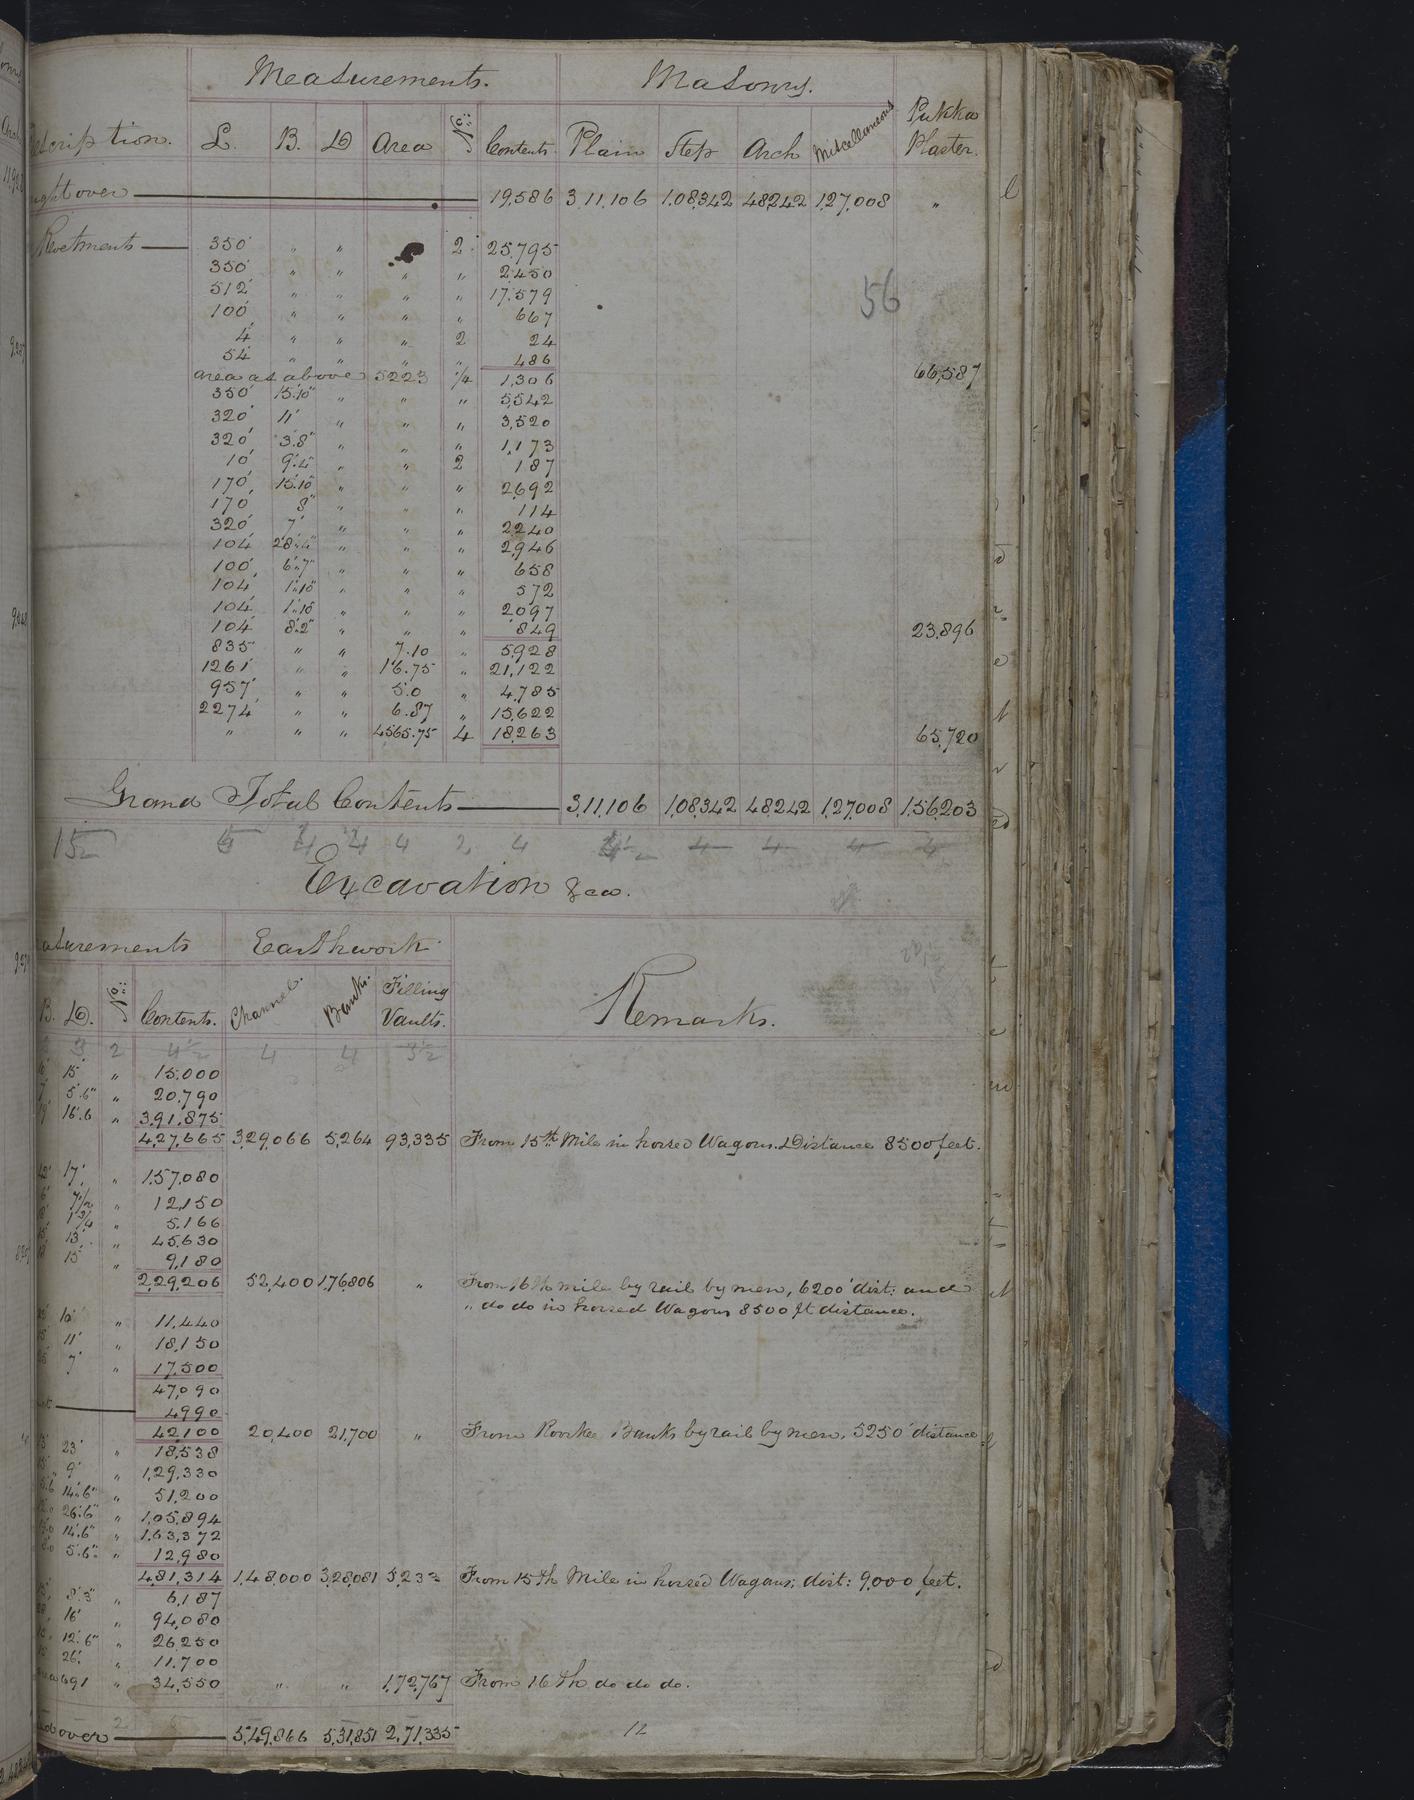 Measurements. Masonry.
L. B. D Area No: Contents. Plain Step Arch Miscellaneous Pukka Plaster.
over 19,586 3,11,106 1,08,342 48,242 1,27,008 "
Revetments 350' " " 2 25,795
350' " " " " 2,450
512' " " " " 17,579
100' " " " " 667
4' " " " 2 24
54' " " " " 486
area as above 5223 1/4 1,306 66,587
350' 15'.10" " " " 5,542
320' 11' " " " 3,520
320' 3'.8" " " " 1,173
10' 9'.4" " " 2 187
170' 15'.10" " " " 2,692
170' 8" " " " 114
320' 7' " " " 2240
104' 28'.4" " " " 2,946
100' 6'.7" " " " 658
104' " " " 572
104' " " " 2097
104' 8'.2" " " " 849 23,896
835' " " 7.10 " 5,928
1261' " " 16.75 " 21,122
957' " " 5.0 " 4,785
2274' " " 6.87 " 15,622
" " " 4565.75 4 18,263 65,720
Grand Total Contents 3,11,106 1,08,342 48,242 1,27,008 1,56,203
56
Excavation &ca.
Earthwork
B. D. No: Contents. Channel. Banks. Filling Vaults. Remarks.
15' " 15,000
5'.6" " 20,790
16'.6 " 3,91,875
4,27,665 3,29,066 5,264 93,335 From 15th Mile in horsed Wagons. Distance 8500 feet.
17' " 1,57,080
" 12,150
1 3/4 " 5,166
13' " 45,630
15' " 9,180
2,29,206 52,400 1,76,806 " From 16th mile by rail by men, 6200' dist: and
" do do in horsed Wagons 8500 ft distance.
10' " 11,440
11' " 18,150
7' " 17,500
47,090
4990
42,100 20,400 21,700 " From Roorkee Banks by rail by men, 5250' distance
23' " 18,538
9' " 1,29,330
14'.6" " 51,200
26'.6" " 1,05,894
14'.6" " 1,63,372
5'.6" " 12,980
4,81,314 1,48,000 3,28,081 From 15th Mile in horsed Wagons; dist: 9,000 feet.
8'.3" " 6,187
16' " 94,080
12'.6" " 26,250
26' " 11,700
691 " 34,550 " " 1,72,767 From 16th do do do.
over 5,49,866 5,31,851 2,71,335
12